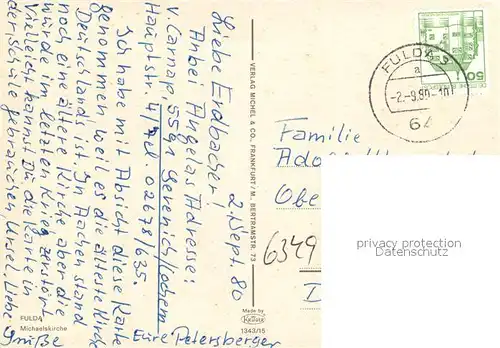 2. Sept. 80
Liebe Erdbacher!
Anbei Angelas Adresse:
v. Carnap, 5591 Gevenich/Cochem
Hauptstr. 4, Tel 02678/635.
Ich habe mit Absicht diese Karte
genommen weil es die älteste Kirche
Deutschlands ist. In Aachen stand
noch eine ältere Kirche aber die
würde im letzten Krieg zerstört
Vielleicht kannst Du die Karte in
der Schule gebrauchen, Ursel. Liebe
Grüße
Eure Petersberger
FULDA
Michaelskirche
VERLAG MICHEL & CO. FRANKFURT/M. BERTRAMSTR. 73
Made by
Krüger
1343/15
FULDA 3
a
-2.-9.80-10
64
50
Familie
Ado
Obe
6349
privacy protection
Datenschutz